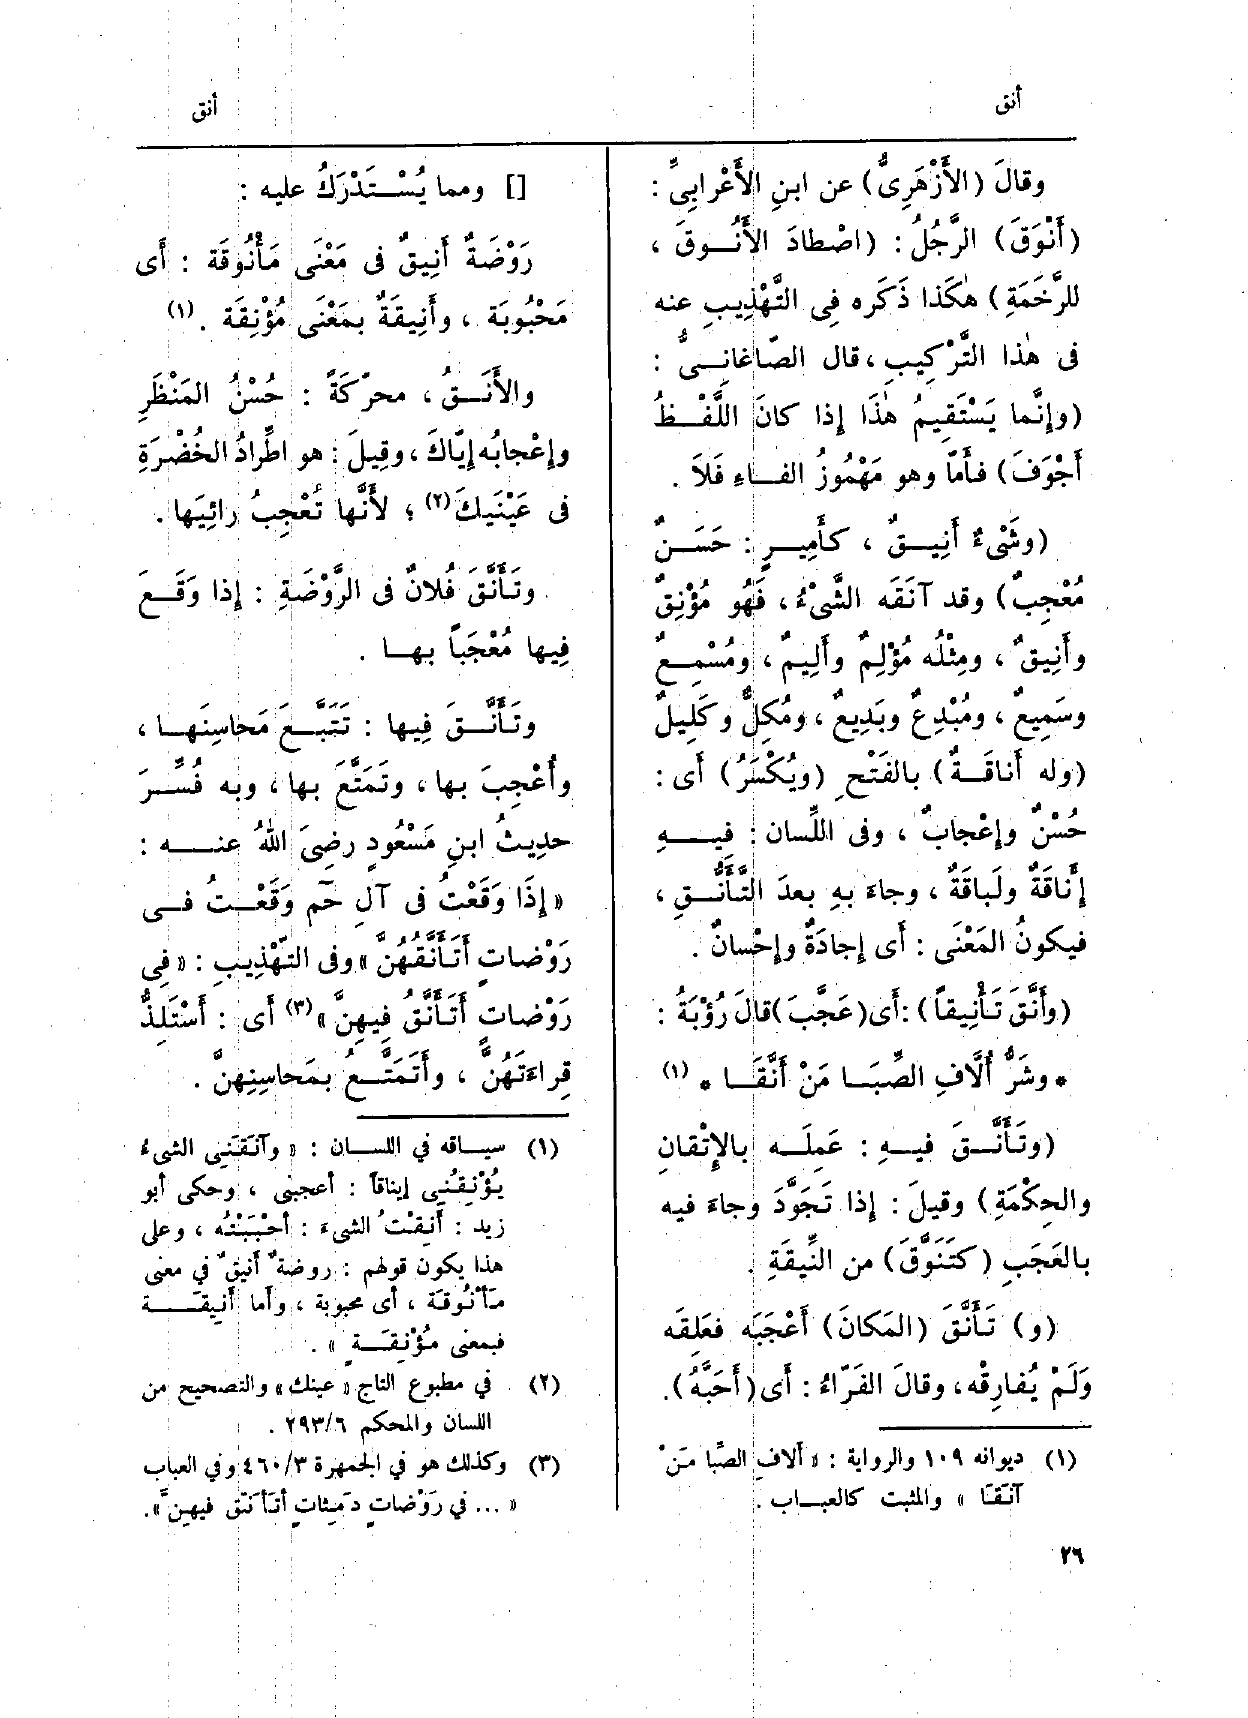 أنق
أنق
وقالَ (الأَزْهَرِىُّ) عن ابنِ الأَعْرابِىِّ :
(أَنْوَقَ) الرَّجُلُ : (اصْطادَ الأَنُـوقَ ،
للرَّخَمَةِ) هٰكَذا ذَكَره فِى التَّهْذِيبِ عنه
فى هٰذا التَّرْكِيبِ ، قال الصّاغانِـىُّ :
(وإِنَّما يَسْتَقِيمُ هٰذَا إِذا كانَ اللَّفْـظُ
أَجْوَفَ) فأَمّا وهو مَهْمُوزُ الفـاءِ فَلاَ .
(وشَىْءٌ أَنِيـقٌ ، كأَمِيـرٍ : حَسَـنٌ
مُعْجِبٌ) وقد آنَقَه الشَّىْءُ ، فَهُو مُؤْنِقٌ
وأَنِيقٌ ، ومِثْلُه مُؤْلِمٌ وأَلِيمٌ ، ومُسْمِـعٌ
وسَمِيعٌ ، ومُبْدِعٌ وبَدِيعٌ ، ومُكِلٌّ وكَلِيلٌ
(وله أَناقَـةٌ) بالفَتْحِ (ويُكْسَرُ) أَى :
حُسْنٌ وإِعْجابٌ ، وفى اللِّسان : فيـهِ
إِناقَةٌ ولَباقَةٌ ، وجاءَ بهِ بعدَ التَّأَنُّـقِ ،
فيكونُ المَعْنَى : أَى إِجادَةٌ وإِحْسانٌ .
(وأَنَّقَ تَأْنِيقاً) : أَى (عَجَّبَ) قالَ رُؤْبَةُ :
* وشَرُّ أُلاَّفِ الصِّبَـا مَنْ أَنَّقَـا * (١)
(وتَأَنَّـقَ فيـهِ : عَمِلَـه بالإِتْقانِ
والحِكْمَةِ) وقيلَ : إِذا تَجَوَّدَ وجاءَ فيه
بالعَجَبِ (كتَنَوَّقَ) من النِّيقَةِ .
(و) تَأَنَّقَ (المَكانَ) أَعْجَبَه فعَلِقَه
وَلَمْ يُفارِقْه ، وقالَ الفَرّاءُ : أَى (أَحَبَّهُ) .
(١) ديوانه ١٠٩ والرواية : « آلافِ الصِّبا مَنْ
آنَقَا » والمثبت كالعبـاب .
[] ومما يُسْـتَدْرَكُ عليه :
رَوْضَةٌ أَنِيقٌ فى مَعْنَى مَأْنُوقَة : أَى
مَحْبُوبَة ، وأَنِيقَةٌ بمَعْنَى مُؤْنِقَة . (١)
والأَنَـقُ ، محرّكَةً : حُسْنُ المَنْظَرِ
وإِعْجابُه إِيّاكَ ، وقِيلَ : هو اطِّرادُ الخُضْرَةِ
فى عَيْنَيكَ (٢) ؛ لأَنَّها تُعْجِبُ رائِيَها .
وتَأَنَّقَ فُلانٌ فى الرَّوْضَةِ : إِذا وَقَـعَ
فِيها مُعْجَباً بهـا .
وتَأَنَّـقَ فِيها : تَتَبَّـعَ مَحاسِنَهـا ،
وأُعْجِبَ بها ، وتَمَتَّعَ بها ، وبه فُسِّـرَ
حديثُ ابنِ مَسْعُودٍ رضِىَ اللهُ عنـه :
« إِذَا وَقَعْتُ فى آلِ حٰم وَقَعْـتُ فـى
رَوْضاتٍ أَتَأَنَّقُهُنَّ » وفى التَّهْذِيبِ : « فِى
رَوْضاتٍ أَتَأَنَّقُ فِيهِنَّ » (٣) أَى : أَسْتَلِذُّ
قِراءَتَهُنَّ ، وأَتَمَتَّـعُ بمَحاسِنِهنَّ .
(١) سيـاقه في اللسـان : « وآنَقَنِي الشيءُ
يُؤْنِقُنِي إِيناقاً : أعجبنى ، وحكى أبو
زيد : أَنِقْتُ الشيءَ : أَحْبَبْتُه ، وعلى
هذا يكون قولهم : روضةٌ أنيقٌ في معنى
مَأْنُوقَة ، أى محبوبة ، وأما أَنِيقَـة
فبمعنى مُؤْنِقَـةٍ » .
(٢) في مطبوع التاج « عينك » والتصحيح من
اللسان والمحكم ٢٩٣/٦ .
(٣) وكذلك هو في الجمهرة ٤٦٠/٣ وفي العباب
« ... في رَوْضاتٍ دَمِثاتٍ أَتَأَنَّقُ فيهِنَّ » .
٢٦